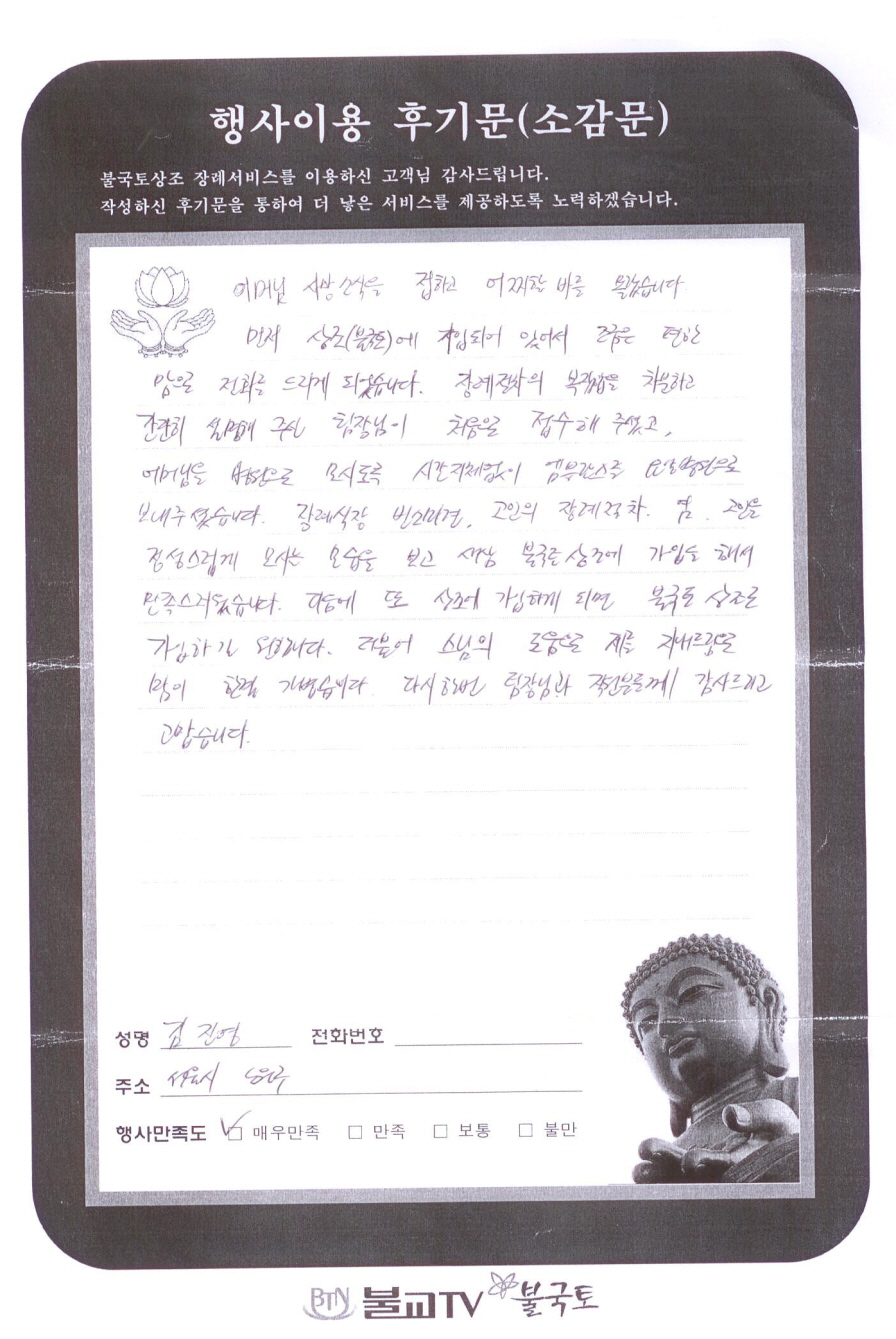 행사이용 후기문(소감문)
불국토상조 장례서비스를 이용하신 고객님 감사드립니다.
작성하신 후기문을 통하여 더 낳은 서비스를 제공하도록 노력하겠습니다.
어머님 사망소식을 접하고 어찌할 바를 몰랐습니다
먼저 상조(불국토)에 가입되어 있어서 조금은 편한
맘으로 전화를 드리게 되었습니다. 장례절차의 복잡함을 차분하고
간단히 설명해 주신 팀장님이 처음으로 접수해 주셨고,
어머님을 병원으로 모시도록 시간지체없이 엠뷰란스를
보내주셨습니다. 장례식장 고인의 장례절차. 염. 고인을
정성스럽게 모시는 모습을 보고 새삼 불국토상조에 가입을 해서
만족스러웠습니다. 다음에 또 상조에 가입하게 되면 불국토 상조로
가입하길 원합니다. 더불어 스님의 도움으로 제를 지내므로
맘이 한결 가볍습니다. 다시한번 팀장님과 직원분들께 감사드리고
고맙습니다.
성명 김진영 전화번호
주소 서울시 노원구
행사만족도 □ 매우만족 □ 만족 □ 보통 □ 불만
BTN 불교TV 불국토